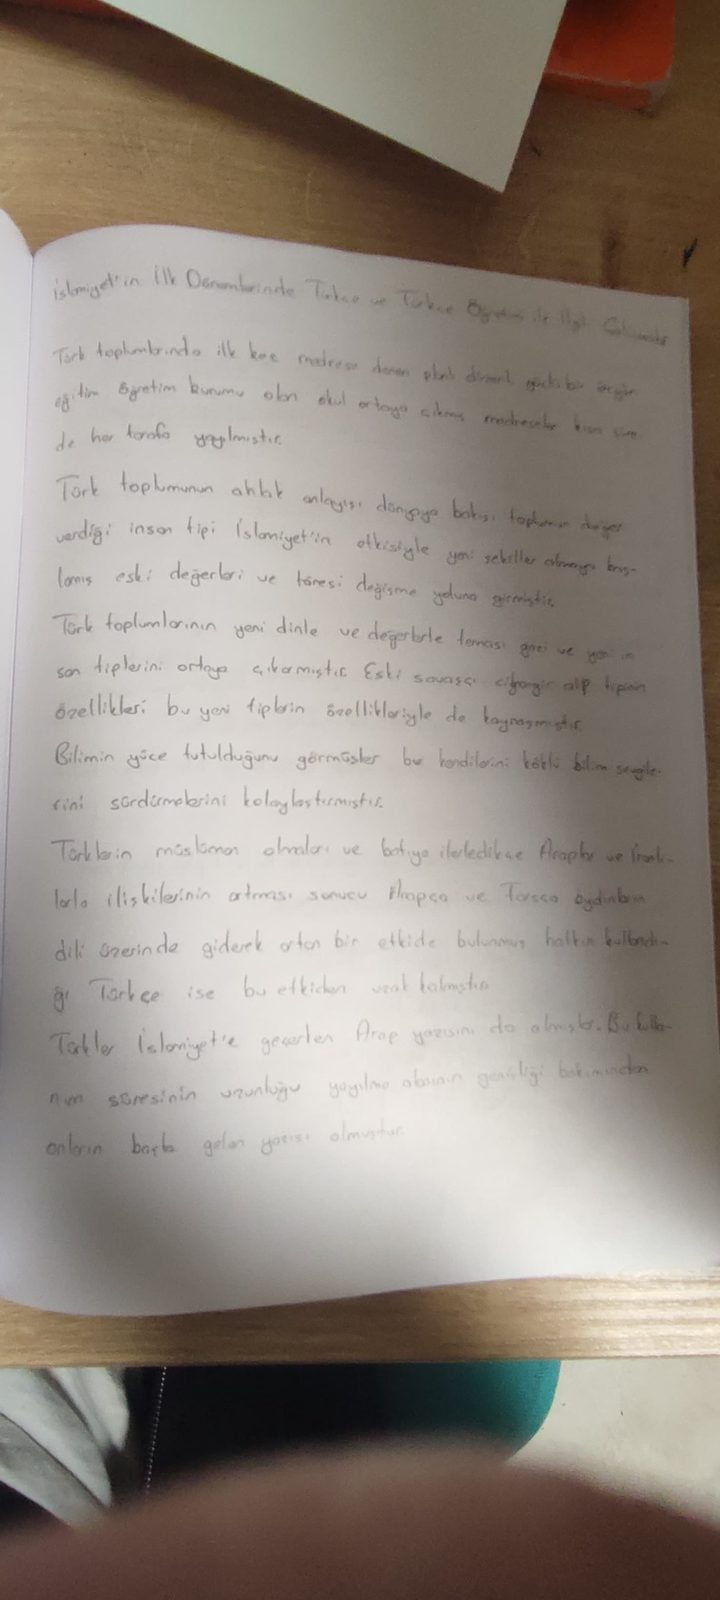 İslamiyet'in İlk Dönemlerinde Türkçe ve Türkçe Öğretimi ile İlgili
Türk toplumlarında ilk kez medrese denen planlı güçlü bir örgün
eğitim öğretim kurumu olan okul ortaya çıkmış medreseler kısa süre
de her tarafa yayılmıştır.
Türk toplumunun ahlak anlayışı dünyaya bakışı toplumun değer
verdiği insan tipi İslamiyet'in etkisiyle yeni şekiller almaya baş-
lamış eski değerleri ve töresi değişme yoluna girmiştir.
Türk toplumlarının yeni dinle ve değerlerle teması yeni in
san tiplerini ortaya çıkarmıştır. Eski savaşçı cihangir alp tipinin
özellikleri bu yeni tiplerin özellikleriyle de kaynaşmıştır.
Bilimin yüce tutulduğunu görmüşler bu kendilerini köklü bilim sevgile-
rini sürdürmelerini kolaylaştırmıştır.
Türklerin müslüman olmaları ve batıya ilerledikçe Araplar ve İran-
larla ilişkilerinin artması sonucu Arapça ve Farsça aydınların
dili üzerinde giderek artan bir etkide bulunmuş halkın kullandı-
ğı Türkçe ise bu etkiden uzak kalmıştır.
Türkler İslamiyet'e geçerken Arap yazısını da almışlar. Bu kulla-
nım süresinin uzunluğu yayılma alanının genişliği bakımından
onların başta gelen yazısı olmuştur.